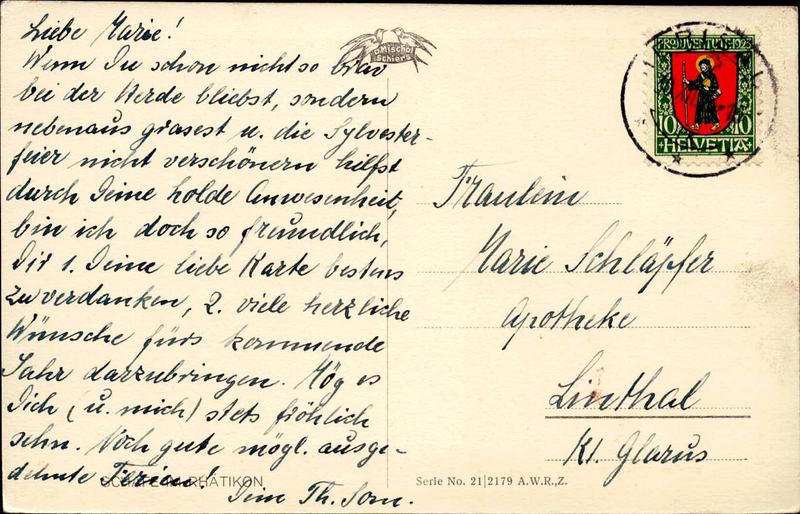 Liebe Marie!
Wenn Du schon nicht so brav
bei der Herde bliebst, sondern
nebenaus grasest u. die Sylvester-
feier nicht verschönern hilfst
durch Deine holde Anwesenheit,
bin ich doch so freundlich,
Dir 1. Deine liebe Karte bestens
zu verdanken, 2. viele herzliche
Wünsche fürs kommende
Jahr darzubringen. Mög es
Dich (u. mich) stets fröhlich
sehn. Noch gute mögl. ausge-
dehnte Ferien!
Dein Th. Som.
RHÄTIKON
D. Mischol
Schiers
PRO JUVENTUTE 1925
10 10
HELVETIA
Fräulein
Marie Schläpfer
Apotheke
Linthal
Kt. Glarus
Serie No. 21|2179 A.W.R.,Z.